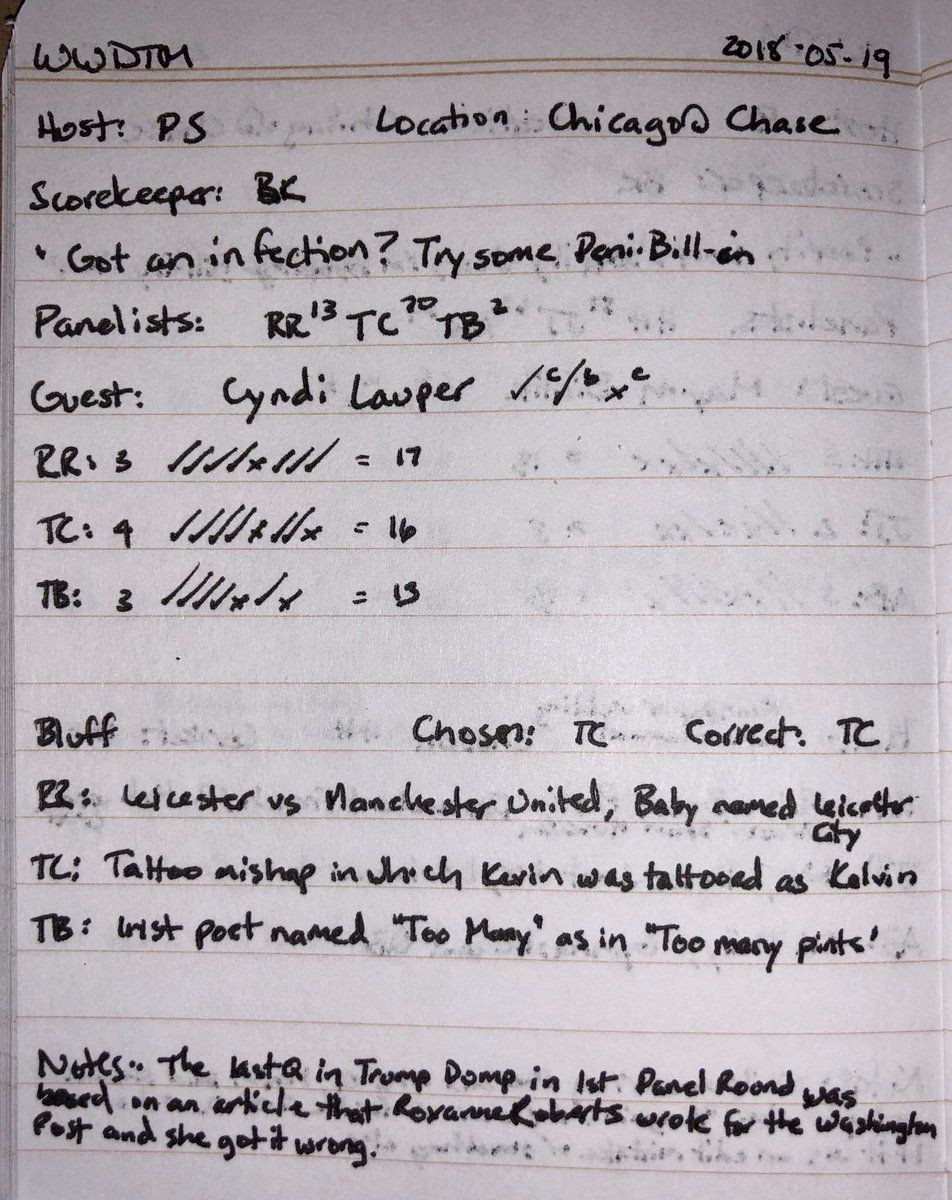 WWDTM 2018-05-19
Host: PS Location: Chicago @ Chase
Scorekeeper: BK
Got an infection? Try some Peni-Bill-in
Panelists: RR¹³ TC²⁰ TB²
Guest: Cyndi Lauper ✓ᶜ/ᵇxᶜ
RR: 3 ////x/// = 17
TC: 4 ////x//x = 16
TB: 3 ////x/x = 13
Bluff Chosen: TC Correct: TC
RR: Leicester vs Manchester United, Baby named Leicester
City
TC: Tattoo mishap in which Kevin was tattooed as Kelvin
TB: Irist poet named "Too Many" as in "Too many pints".
Notes: The last Q in Trump Domp in 1st Panel Round was
based on an article that Roxanne Roberts wrote for the Washington
Post and she got it wrong.